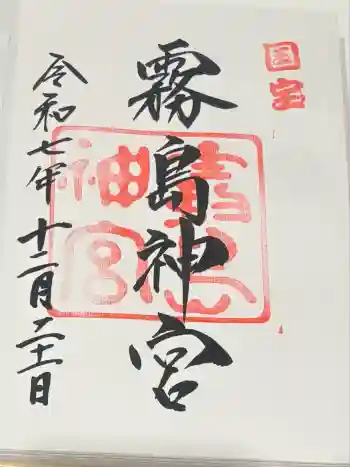 国宝
霧島神宮
霧島
神宮
令和七年十二月二十一日